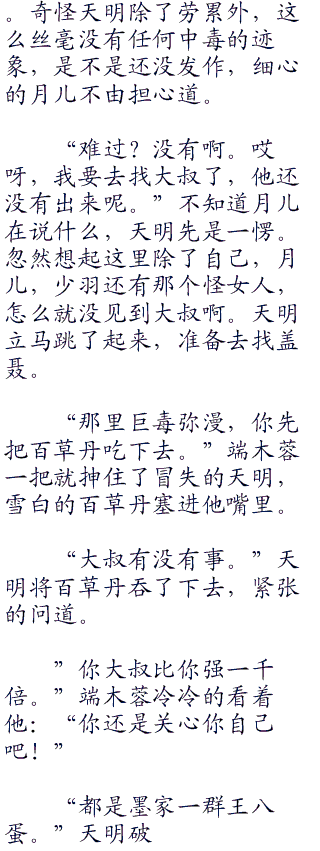 。奇怪天明除了劳累外，这
么丝毫没有任何中毒的迹
象，是不是还没发作，细心
的月儿不由担心道。
“难过？没有啊。哎
呀，我要去找大叔了，他还
没有出来呢。”不知道月儿
在说什么，天明先是一愣。
忽然想起这里除了自己，月
儿，少羽还有那个怪女人，
怎么就没见到大叔啊。天明
立马跳了起来，准备去找盖
聂。
“那里巨毒弥漫，你先
把百草丹吃下去。”端木蓉
一把就抻住了冒失的天明，
雪白的百草丹塞进他嘴里。
“大叔有没有事。”天
明将百草丹吞了下去，紧张
的问道。
”你大叔比你强一千
倍。”端木蓉冷冷的看着
他：“你还是关心你自己
吧！”
“都是墨家一群王八
蛋。”天明破